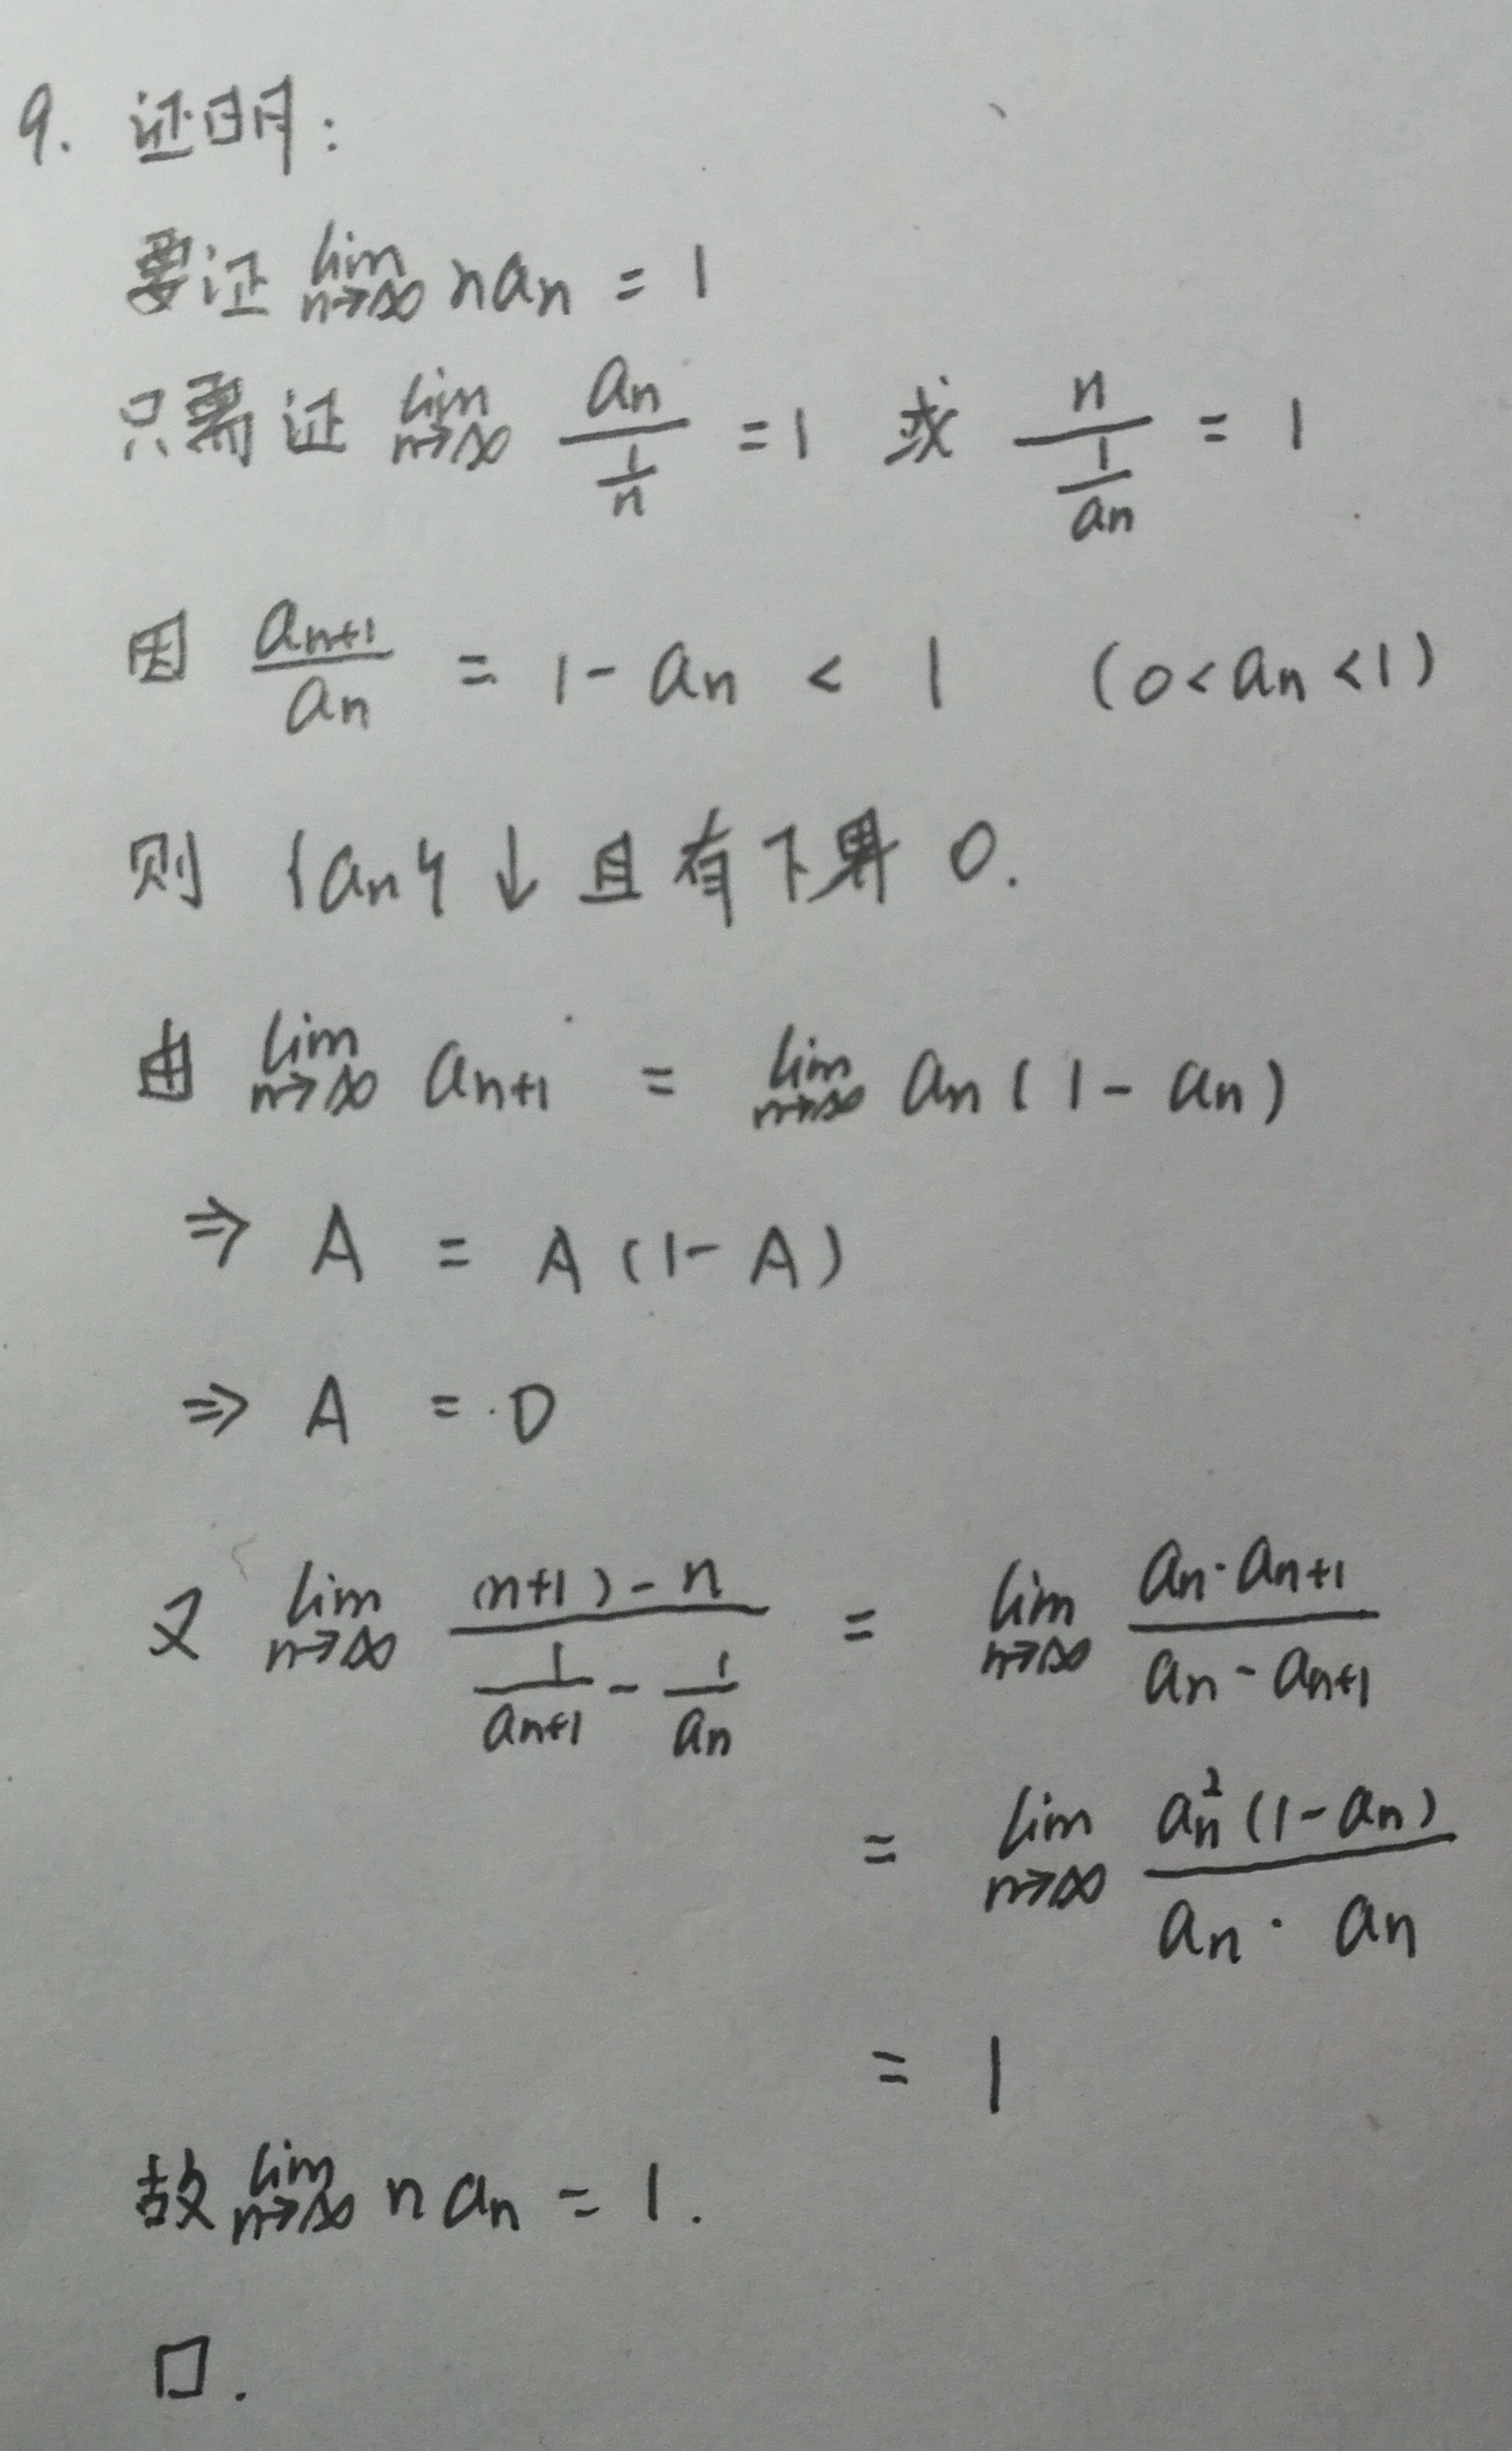 9. 证明:
要证 lim n→∞ n aₙ = 1
只需证 lim n→∞ aₙ / (1/n) = 1 或 n / (1/aₙ) = 1
因 aₙ₊₁/aₙ = 1 - aₙ < 1 (0 < aₙ < 1)
则 {aₙ} ↓ 且有下界 0.
由 lim n→∞ aₙ₊₁ = lim n→∞ aₙ(1 - aₙ)
⇒ A = A(1 - A)
⇒ A = 0
又 lim n→∞ ((n+1) - n) / (1/aₙ₊₁ - 1/aₙ) = lim n→∞ (aₙ·aₙ₊₁) / (aₙ - aₙ₊₁)
= lim n→∞ aₙ²(1 - aₙ) / (aₙ · aₙ)
= 1
故 lim n→∞ n aₙ = 1.
□.